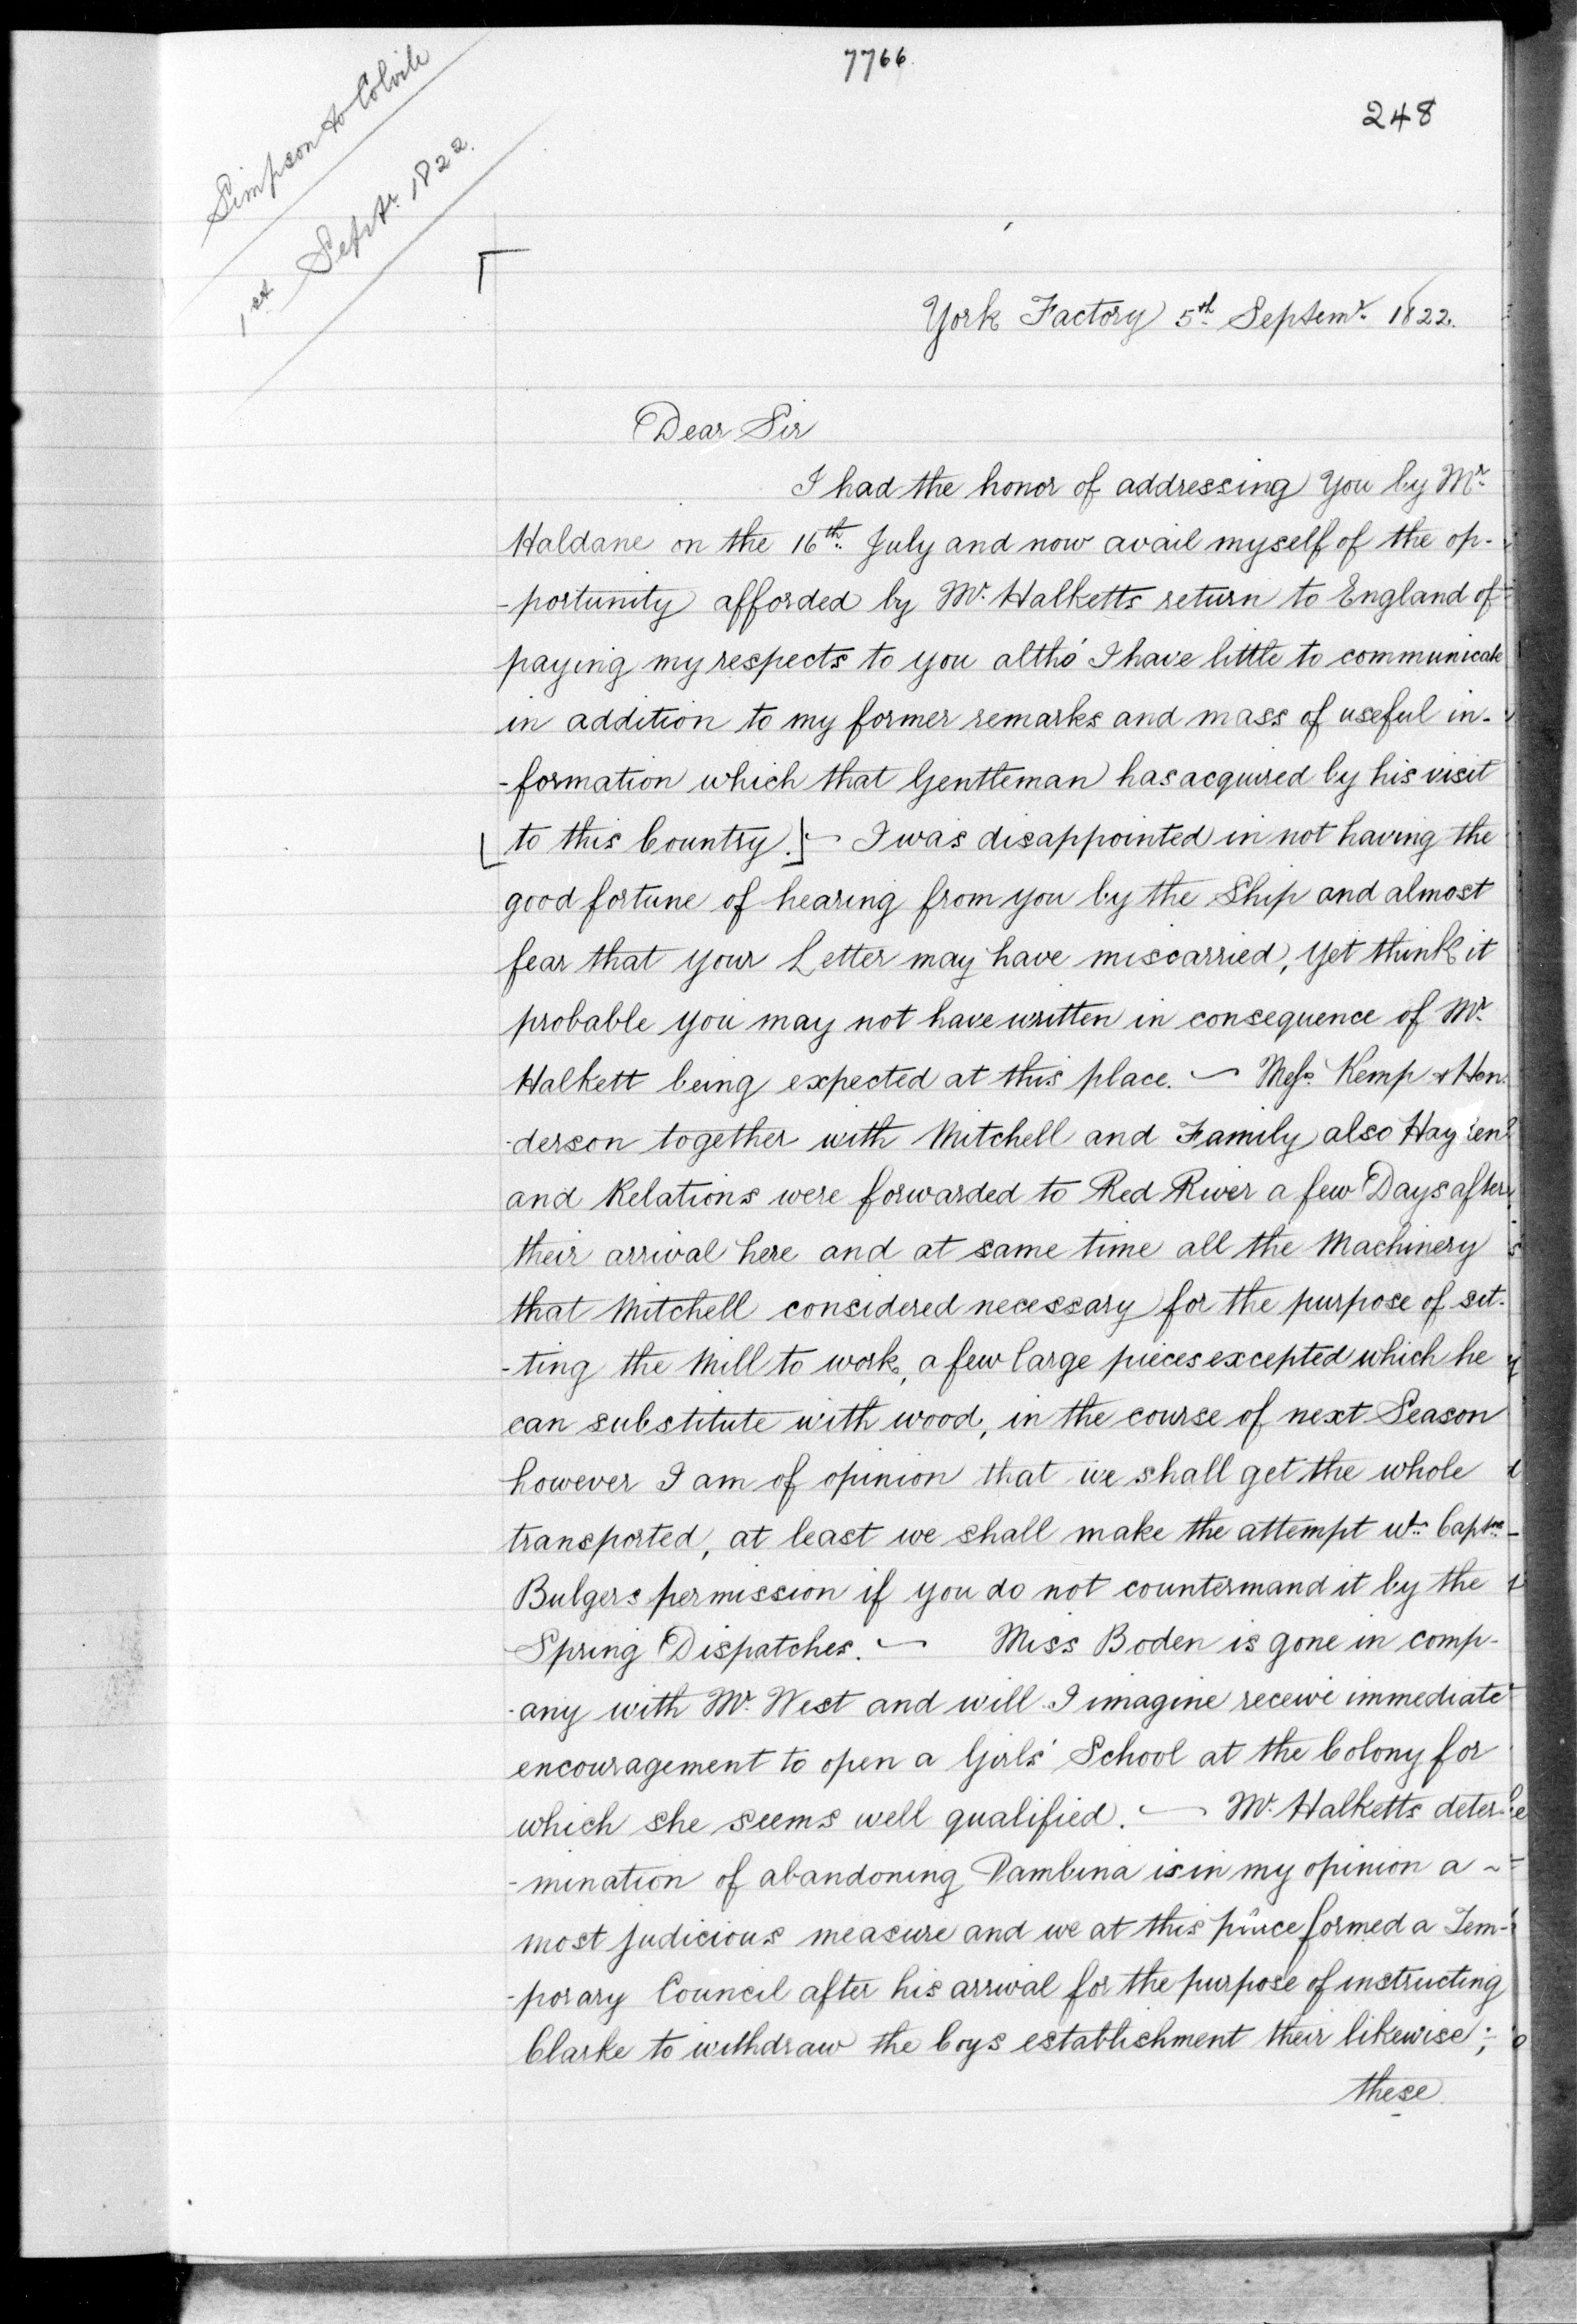 7766.
248
Simpson to Colvile
1st Septr. 1822.
York Factory 5th Septemr. 1822.
Dear Sir
I had the honor of addressing You by Mr.
Haldane on the 16th. July and now avail myself of the op-
-portunity afforded by Mr. Halketts return to England of
paying my respects to you altho' I have little to communicate
in addition to my former remarks and mass of useful in-
-formation which that Gentleman has acquired by his visit
[to this Country.] — I was disappointed in not having the
good fortune of hearing from you by the Ship and almost
fear that your Letter may have miscarried, yet think it
probable you may not have written in consequence of Mr.
Halkett being expected at this place. — Messrs. Kemp & Hen-
-derson together with Mitchell and Family also
and Relations were forwarded to Red River a few Days after
their arrival here and at same time all the Machinery
that Mitchell considered necessary for the purpose of set-
-ting the Mill to work, a few large pieces excepted which he
can substitute with wood, in the course of next Season
however I am of opinion that we shall get the whole
transported, at least we shall make the attempt wt. Captn.
Bulgers permission if you do not countermand it by the
Spring Dispatches. — Miss Boden is gone in comp-
-any with Mr. West and will I imagine receive immediate
encouragement to open a Girls' School at the Colony for
which she seems well qualified. — Mr. Halketts deter-
-mination of abandoning Pambina is in my opinion a
most judicious measure and we at this place formed a Tem-
-porary Council after his arrival for the purpose of instructing
Clarke to withdraw the Coys establishment their likewise;
these